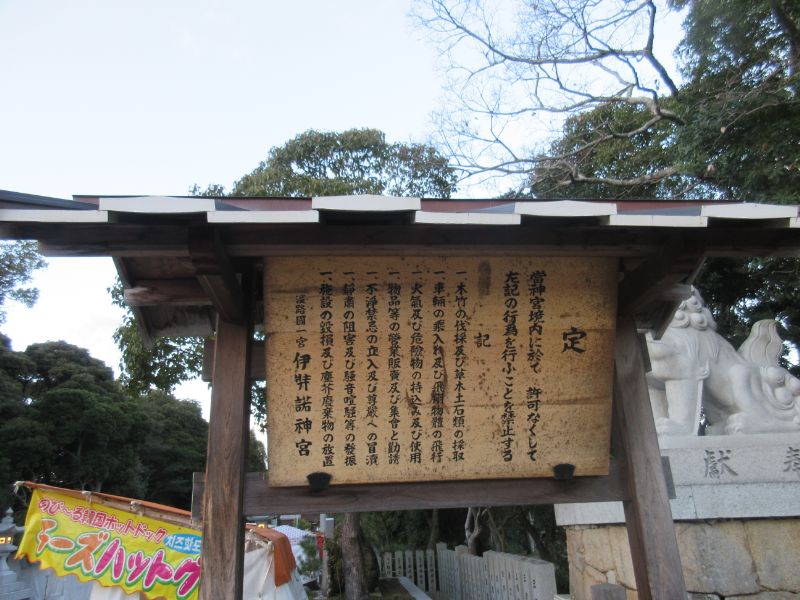 定
當神宮境内に於て 許可なくして
左記の行為を行ふことを禁止する
記
一、木竹の伐採及び草木土石類の採取
一、車輌の乗入れ及び飛翔物體の飛行
一、火氣及び危險物の持込み及び使用
一、物品等の營業販賣及び集會と勸誘
一、不淨禁忌の立入及び尊嚴への冒瀆
一、靜肅の阻害及び騒音喧騒等の發振
一、施設の毀損及び塵芥廃棄物の放置
淡路國一宮 伊弉諾神宮
のび〜る韓国ホットドック
チーズハットグ
치즈핫도
獻
奉